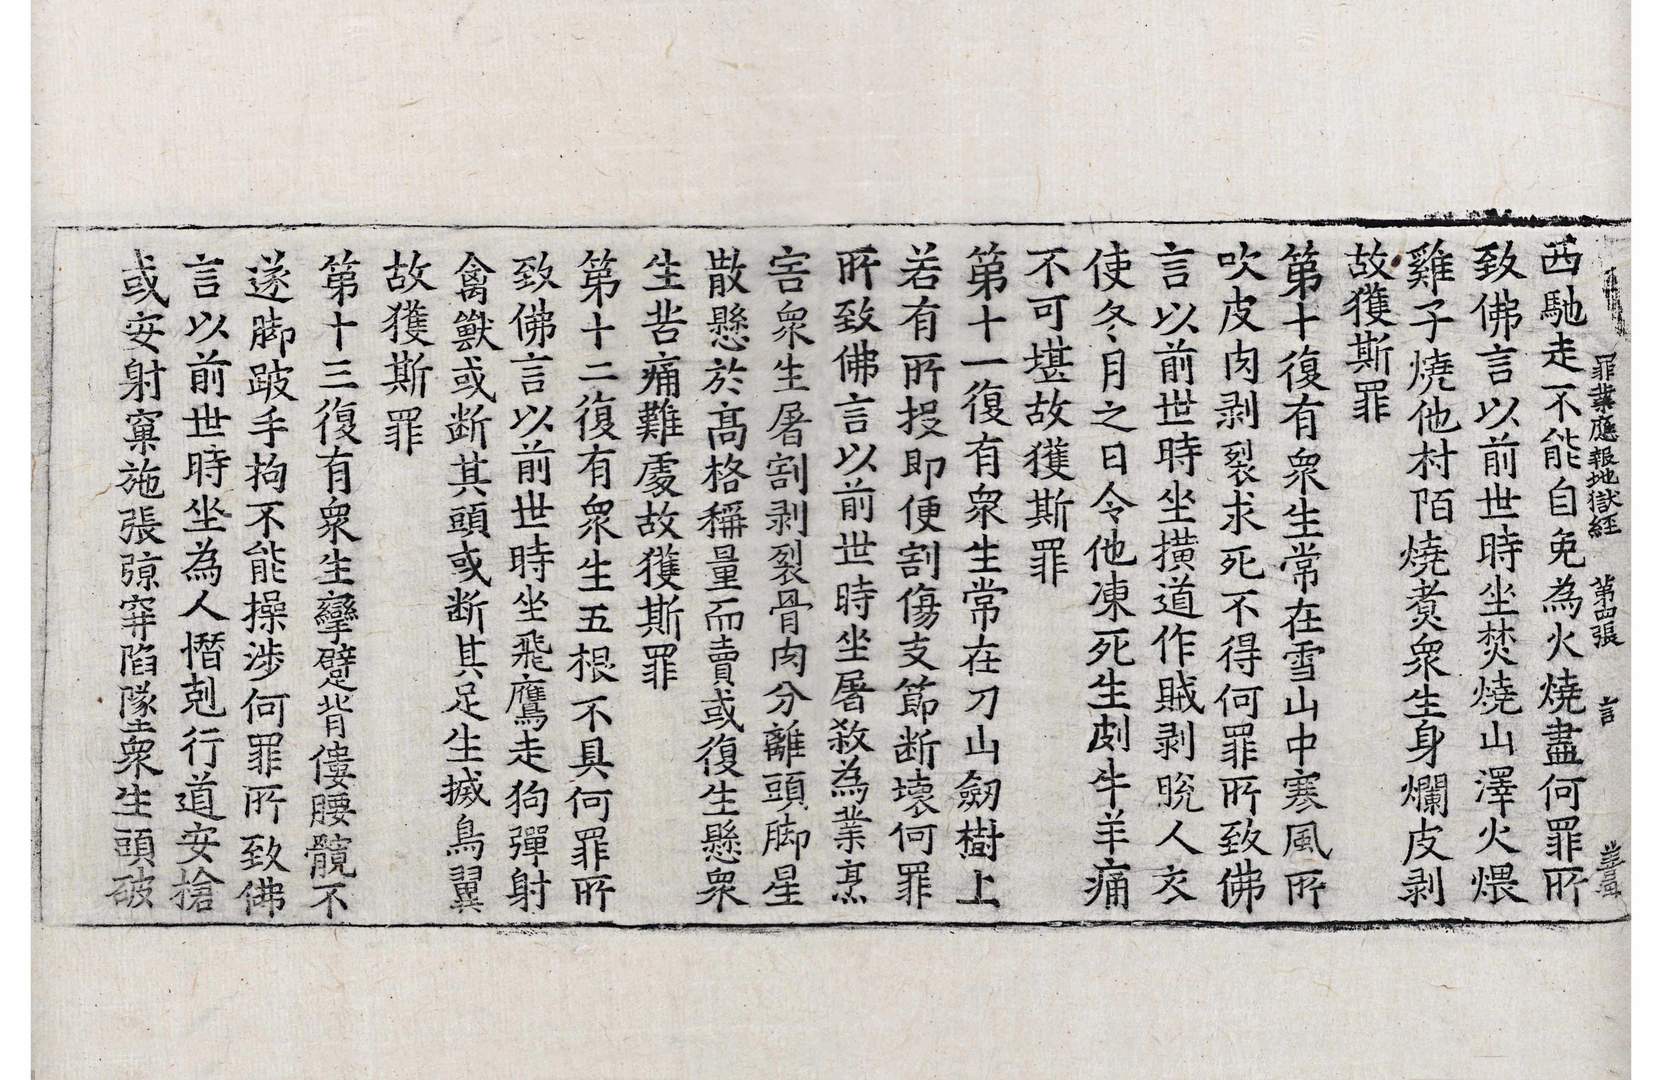 罪業應報地獄經　第四張　言
西馳走不能自免為火燒盡何罪所
致佛言以前世時坐焚燒山澤火煨
雞子燒他村陌燒煑衆生身爛皮剥
故獲斯罪
第十復有衆生常在雪山中寒風所
吹皮肉剥裂求死不得何罪所致佛
言以前世時坐撗道作賊剥脫人衣
使冬月之日令他凍死生剠牛羊痛
不可堪故獲斯罪
第十一復有衆生常在刀山劒樹上
若有所投即便割傷支節断壊何罪
所致佛言以前世時坐屠殺為業烹
害衆生屠割剥裂骨肉分離頭脚星
散懸於髙格稱量而賣或復生懸衆
生苦痛難處故獲斯罪
第十二復有衆生五根不具何罪所
致佛言以前世時坐飛鷹走狗彈射
禽獸或断其頭或断其足生搣鳥翼
故獲斯罪
第十三復有衆生攣躄背僂腰髖不
遂脚跛手拘不能操涉何罪所致佛
言以前世時坐為人憯剋行道安槍
或安射窠施張弶穽陷墬衆生頭破